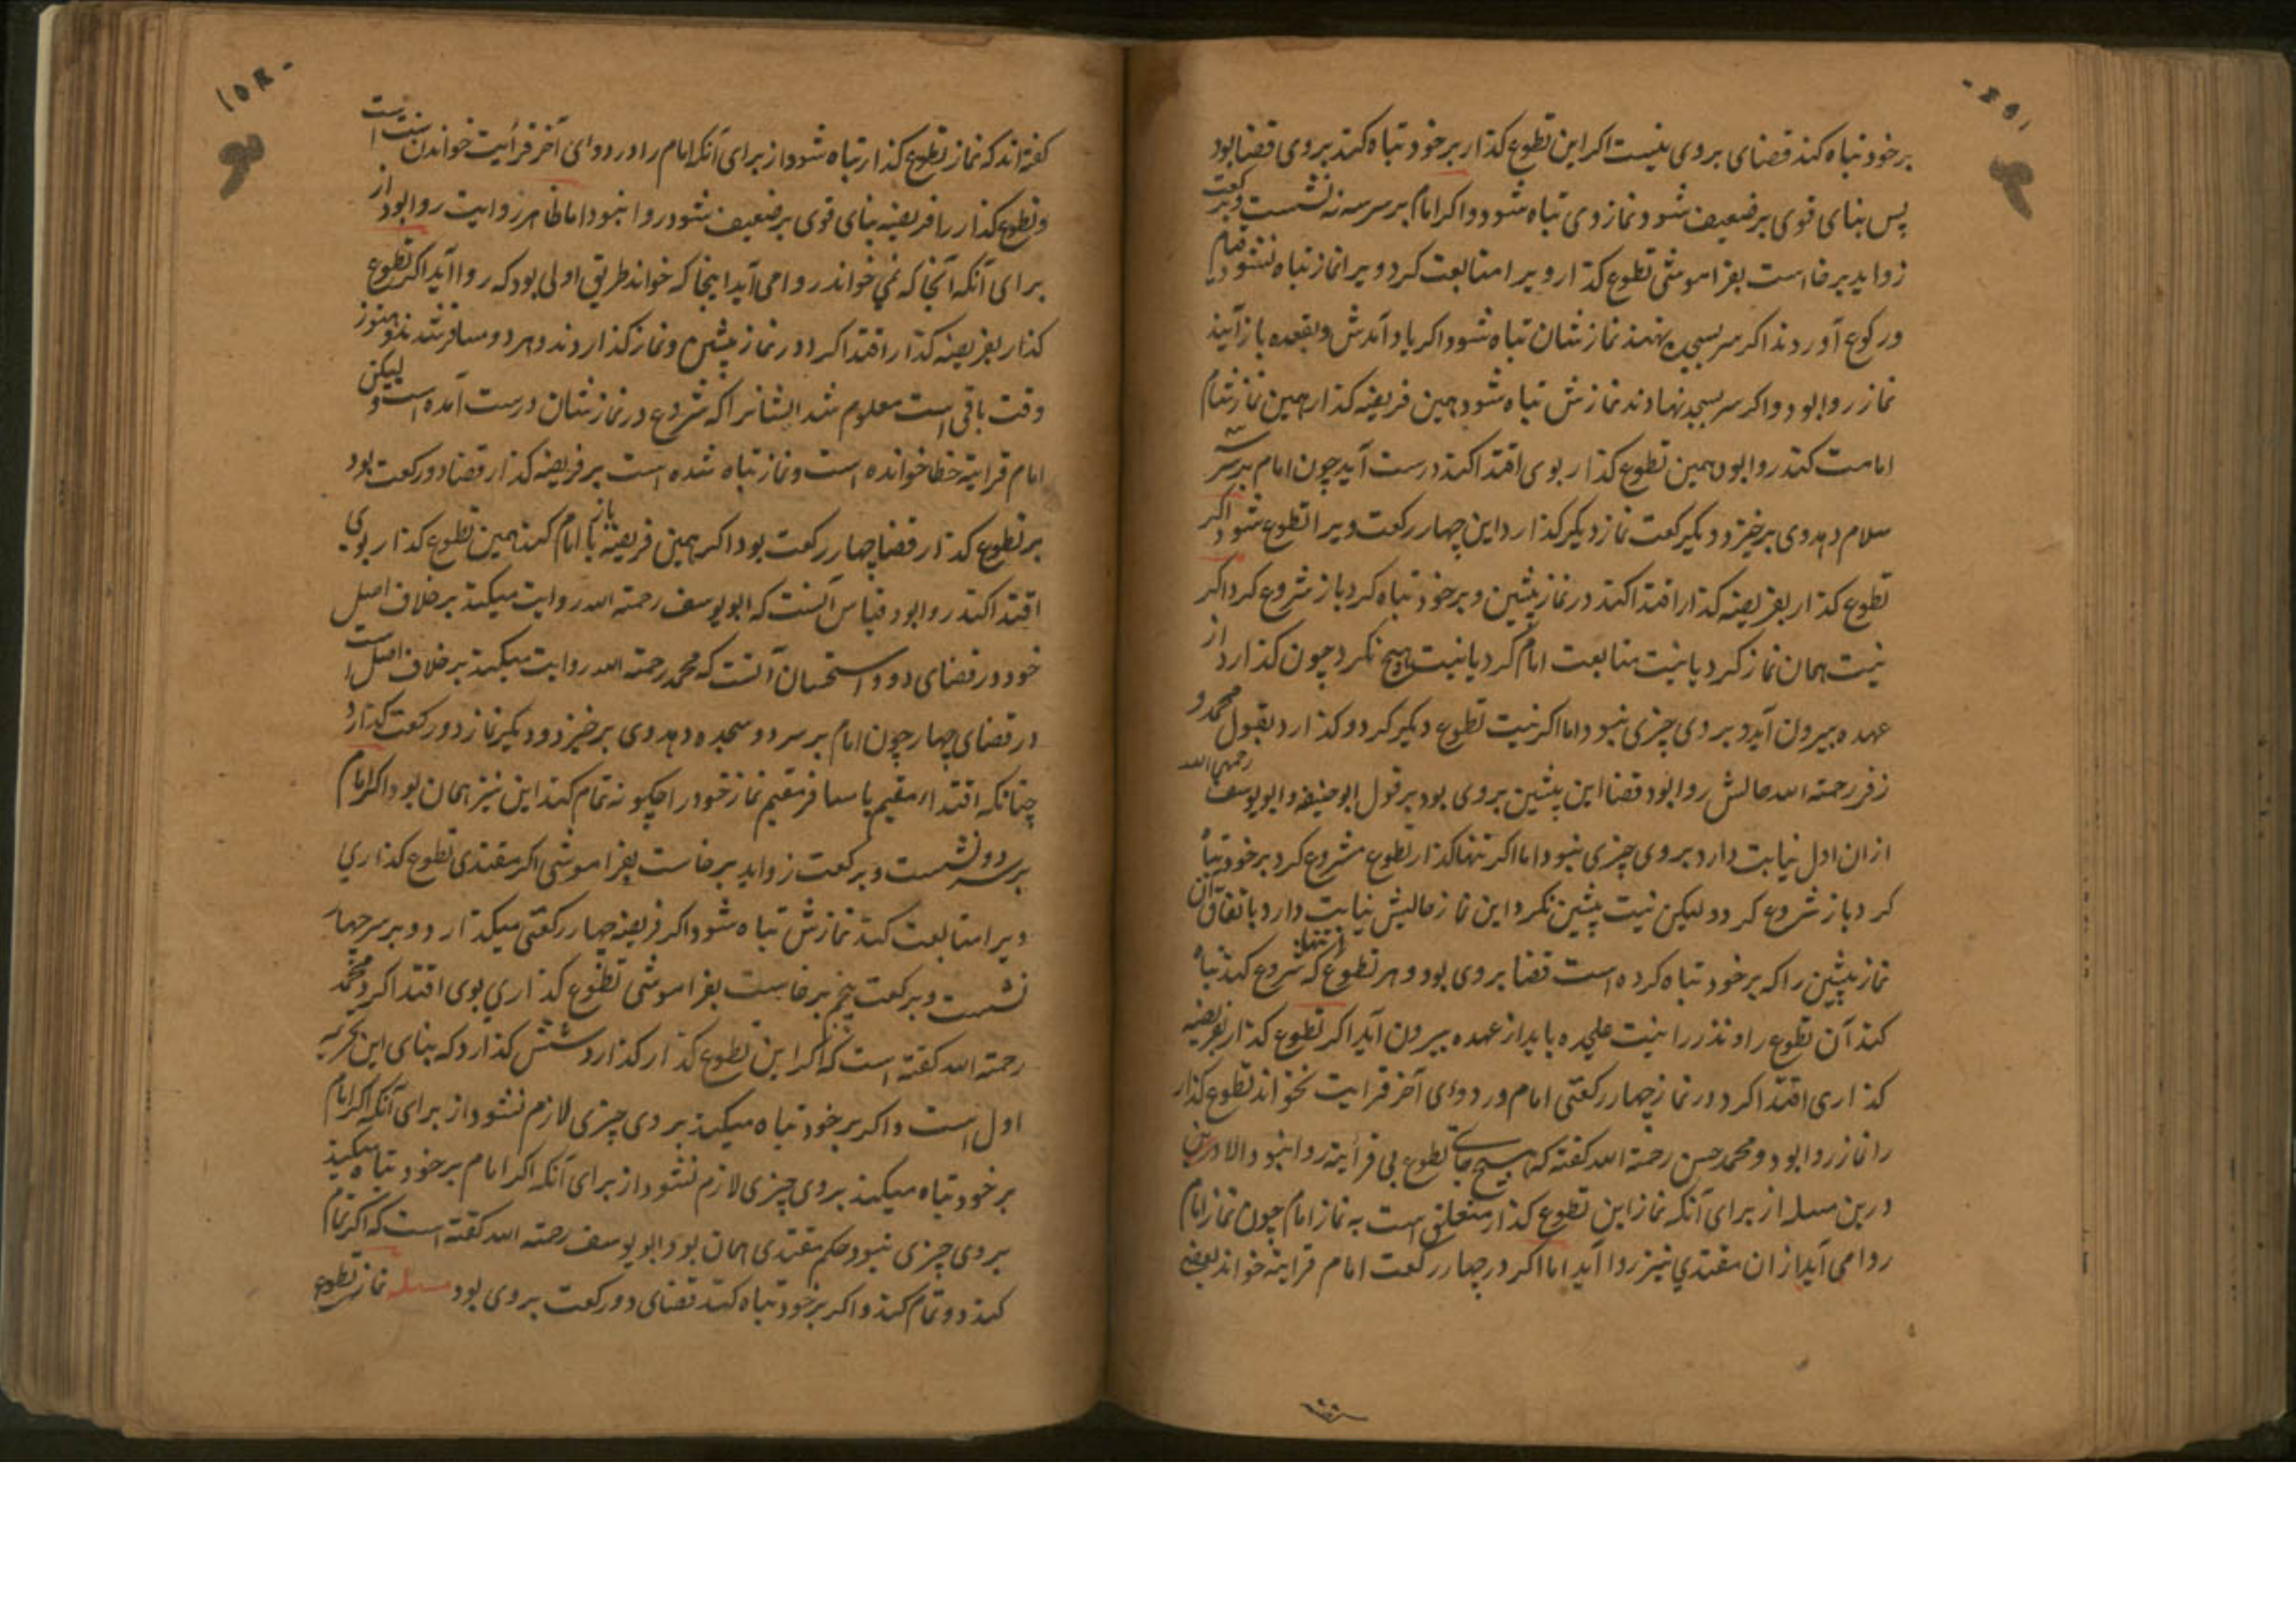 برخود تباه کند قضای بروی نیست اکر این تطوع کذار برخود تباه کند بروی قضا بود
پس بنای قوی بر ضعیف شود نماز وی تباه شود و اکر امام بر سر سه نه نشست و برکعت
زواید برخاست بفراموشی تطوع کذار ویرا متابعت کرد ویرا نماز تباه نشود قیام
ورکوع آوردند اکر سر بسجده نهند نمازشان تباه شود اکر یاد آمدش و بقعده باز آیند
نماز روا بود و اکر سر بسجده نهادند نمازش تباه شود همین فریضه کذار همین نماز شام
امامت کند روا بود همین تطوع کذار بوی اقتدا کند درست آید چون امام بر سر سه
سلام دهد وی برخیزد و دیکر رکعت نماز دیکر کذارد این چهار رکعت ویرا تطوع شود اکر
تطوع کذار بفریضه کذار اقتدا کند در نماز پیشین و برخود تباه کرد باز شروع کرد اکر
نیت همان نماز کرد یا نیت متابعت امام کرد یا نیت هیچ نکرد چون کذارد از
عهده بیرون آید و بروی چیزی نبود اما اکر نیت تطوع دیکر کرد و کذارد بقول محمد و
زفر رحمته الله حالش روا بود قضا این پیشین بروی بود بر قول ابو حنیفه و ابو یوسف رحمهما الله
از ان اول نیابت دارد بروی چیزی نبود اما اکر تنها کذار تطوع شروع کرد برخود تباه
کرد باز شروع کرد و لیکن نیت پیشین نکرد این نماز حالیش نیابت دارد باتفاق آن
نماز پیشین را که برخود تباه کرده است قضا بروی بود و هر تطوع که شروع کند تباه
کند آن تطوع را و نذر را نیت علیحده باید از عهده بیرون آید اکر تطوع کذار بفریضه
کذاری اقتدا کرد در نماز چهار رکعتی امام در دوای آخر قرایت نخواند تطوع کذار
را نماز روا بود و محمد حسن رحمته الله کفته که هیچ جای تطوع بی قرایته روا نبود والا درین
درین مسله از برای آنکه نماز این تطوع کذار متعلق است به نماز امام چون نماز امام
روا می آید از ان مقتدی نیز روا آید اما اکر در چهار رکعت امام قرایته خواند بعضی
کفته اند که نماز تطوع کذار تباه شود از برای آنکه امام را در دوای آخر قرأیت خواندن سنت است
و تطوع کذار را فریضه بنای قوی بر ضعیف شود روا نبود اما ظاهر روایت روا بود از
برای آنکه آنجا که نمی خواند روا می آید اینجا که خواند طریق اولی بود که روا آید اکر تطوع
کذار بفریضه کذار اقتدا کرد در نماز پیشین و نماز کذاردند و هر دو مسافر شدند و هنوز
وقت باقی است معلوم شد ایشانرا که شروع در نمازشان درست آمده است و لیکن
امام قرایته خطا خوانده است و نماز تباه شده است بر فریضه کذار قضا دو رکعت بود
بر تطوع کذار قضا چهار رکعت بود اکر همین فریضه باز با امام کند همین تطوع کذار بوی
اقتدا کند روا بود قیاس آنست که ابو یوسف رحمته الله روایت میکند بر خلاف اصل
خود در قضای دو و استحسان آنست که محمد رحمته الله روایت میکند بر خلاف اصل است
در قضای چهار چون امام بر سر دو سجده دهد وی برخیزد و دیکر نماز دو رکعت کذارد
چنانکه اقتدا مقیم با مسافر مقیم نماز خود را چکونه تمام کند این نیز همان بود اکر امام
بر سر دو نشست و برکعت زواید برخاست بفراموشی اکر مقتدی تطوع کذاری
ویرا متابعت کند نمازش تباه شود اکر فریضه چهار رکعتی میکذارد و بر سر چهار
نشست و برکعت پنجم برخاست بفراموشی تطوع کذاری بوی اقتدا کرد محمد
رحمته الله کفته است که اکر این تطوع کذار کذارد شش کذارد که بنای این تحریمه
اول است و اکر برخود تباه میکند بروی چیزی لازم نشود از برای آنکه اکر امام
برخود تباه میکند بروی چیزی لازم نشود از برای آنکه اکر امام برخود تباه میکند
بروی چیزی نبود حکم مقتدی همان بود و ابو یوسف رحمته الله کفته است که اکر تمام
کند دو تمام کند و اکر برخود تباه کند قضای دو رکعت بروی بود مسله نماز تطوع